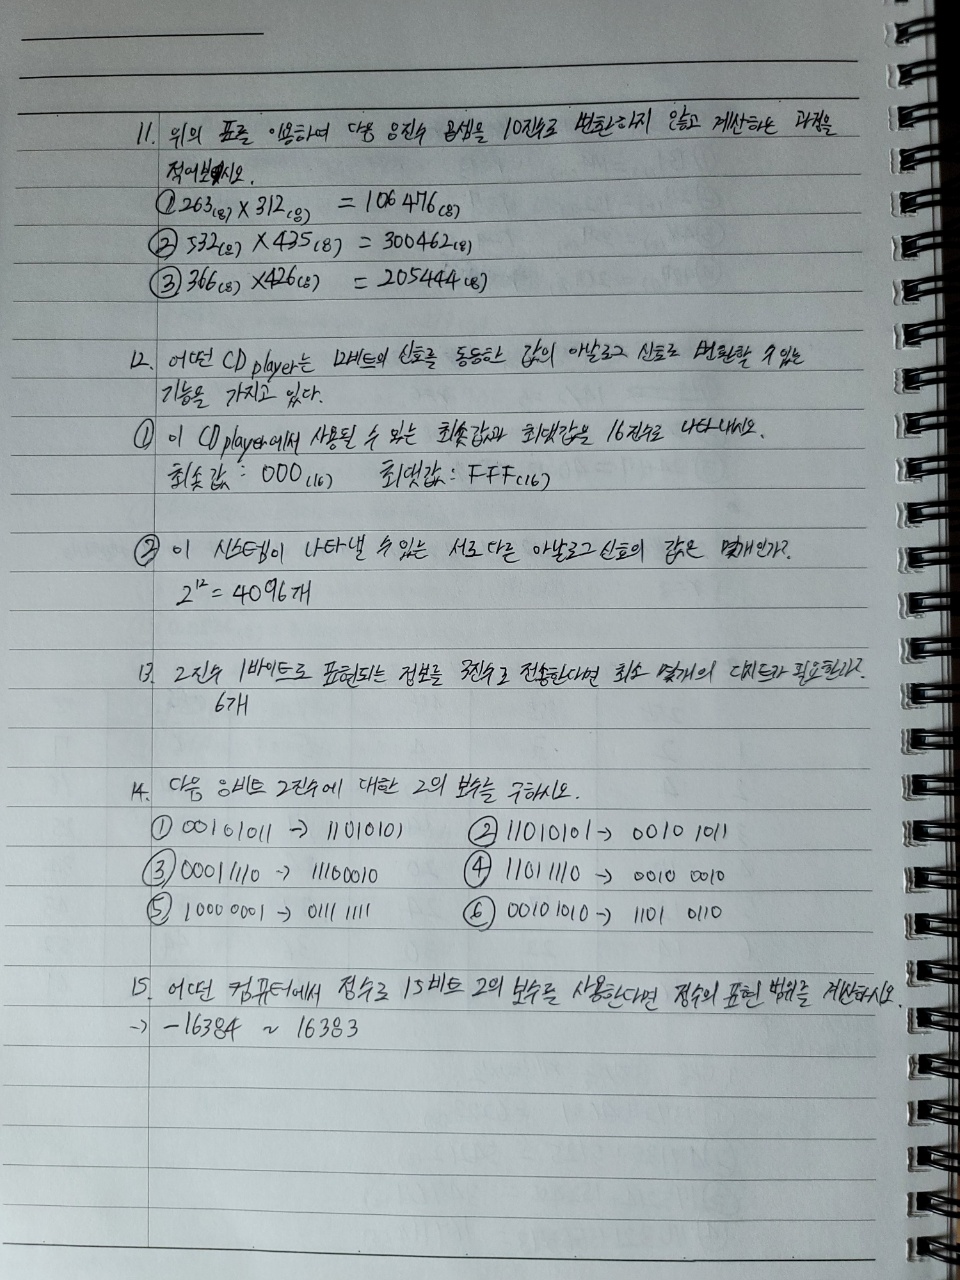 11. 위의 표를 이용하여 다음 8진수 곱셈을 10진수로 변환하지 않고 계산하는 과정을
적어보시오.
① 263(8) × 312(8) = 106476(8)
② 532(8) × 435(8) = 300462(8)
③ 366(8) × 426(8) = 205444(8)
12. 어떤 CD player는 12비트의 신호를 동등한 값의 아날로그 신호로 변환할 수 있는
기능을 가지고 있다.
① 이 CD player에서 사용될 수 있는 최솟값과 최댓값을 16진수로 나타내시오.
최솟값 : 000(16) 최댓값 : FFF(16)
② 이 시스템이 나타낼 수 있는 서로 다른 아날로그 신호의 값은 몇개인가?
2¹² = 4096개
13. 2진수 1바이트로 표현되는 정보를 3진수로 전송한다면 최소 몇개의 디지트가 필요한가?
6개
14. 다음 8비트 2진수에 대한 2의 보수를 구하시오.
① 00101011 → 11010101 ② 11010101 → 0010 1011
③ 00011110 → 11100010 ④ 11011110 → 0010 0010
⑤ 1000 0001 → 0111 1111 ⑥ 00101010 → 1101 0110
15. 어떤 컴퓨터에서 정수로 15비트 2의 보수를 사용한다면 정수의 표현 범위를 계산하시오.
→ -16384 ~ 16383